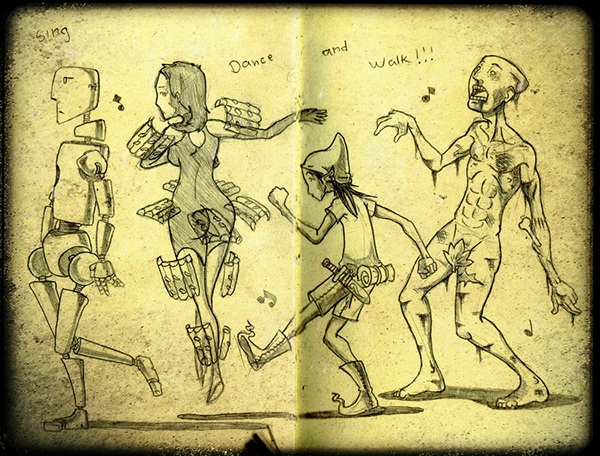 Sing
Dance and Walk!!!